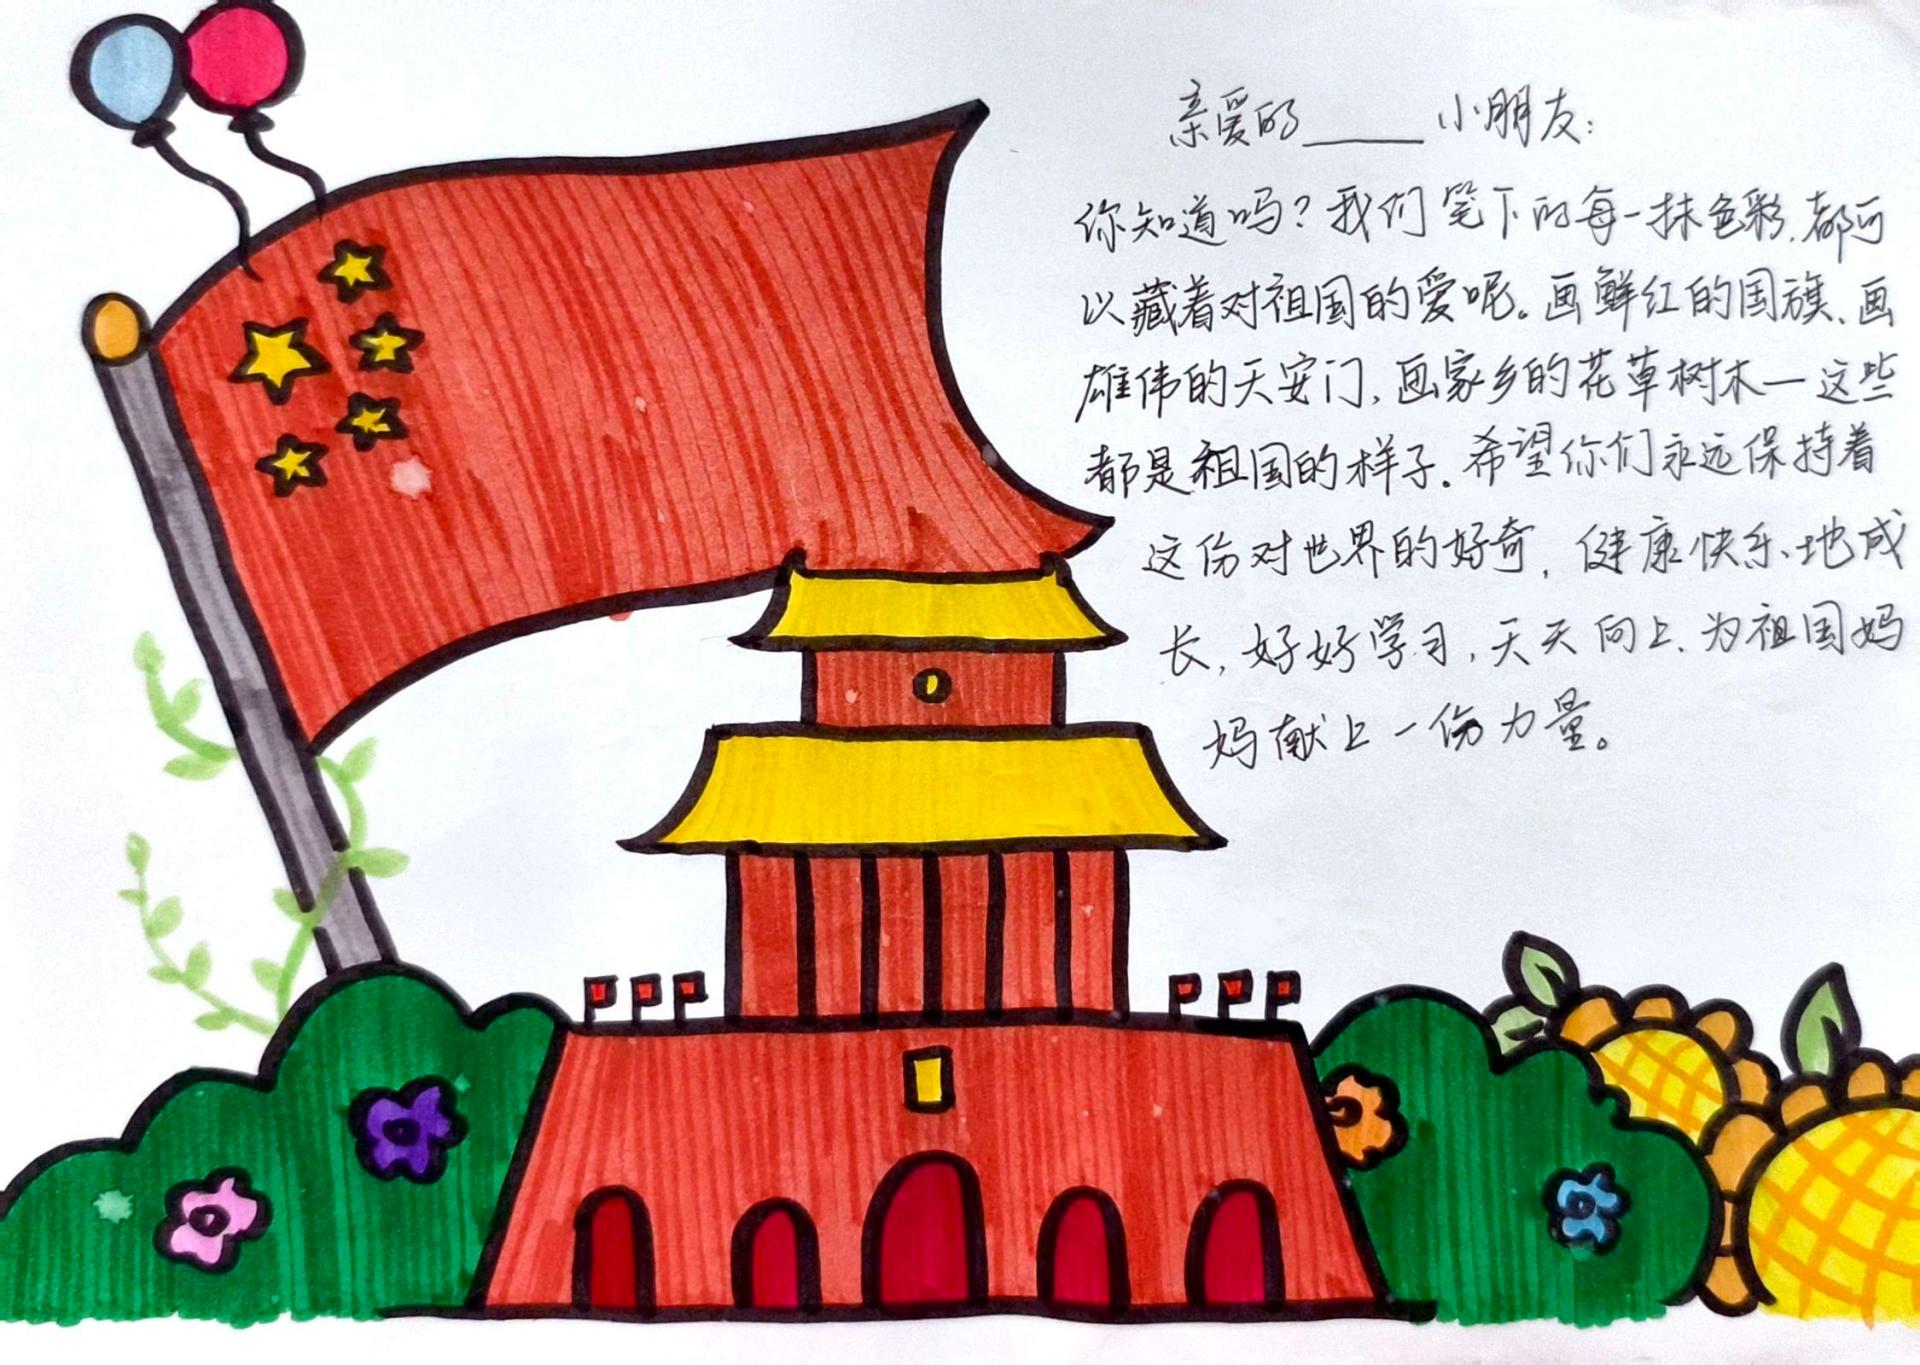 亲爱的______小朋友：
你知道吗？我们笔下的每一抹色彩，都可
以藏着对祖国的爱呢。画鲜红的国旗、画
雄伟的天安门，画家乡的花草树木—这些
都是祖国的样子。希望你们永远保持着
这份对世界的好奇，健康快乐地成
长，好好学习，天天向上、为祖国妈
妈献上一份力量。